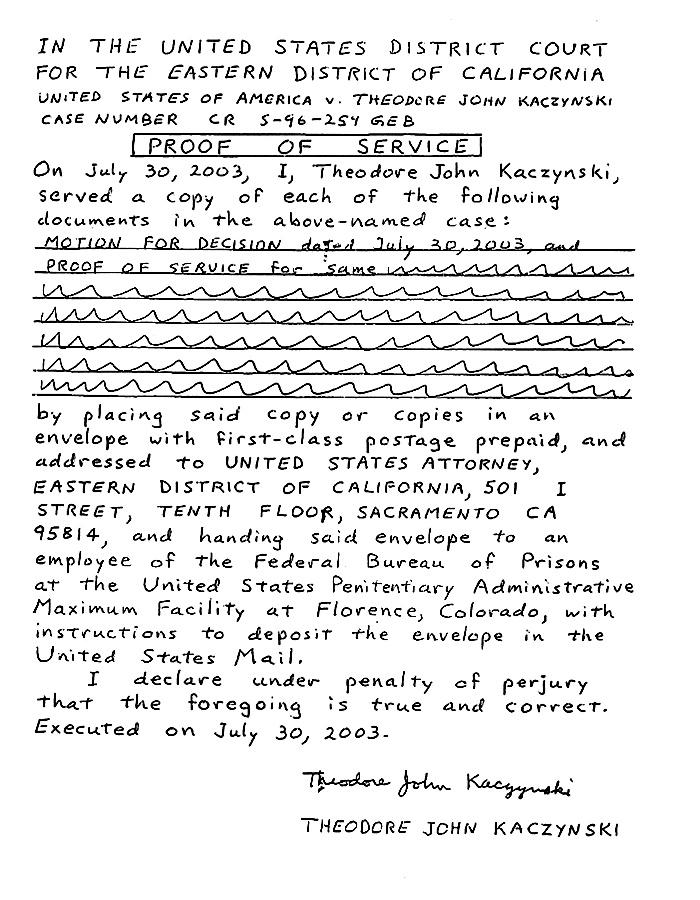 IN THE UNITED STATES DISTRICT COURT
FOR THE EASTERN DISTRICT OF CALIFORNIA
UNITED STATES OF AMERICA v. THEODORE JOHN KACZYNSKI
CASE NUMBER CR S-96-259 GEB
PROOF OF SERVICE
On July 30, 2003, I, Theodore John Kaczynski,
served a copy of each of the following
documents in the above-named case:
MOTION FOR DECISION dated July 30, 2003, and
PROOF OF SERVICE for same
by placing said copy or copies in an
envelope with first-class postage prepaid, and
addressed to UNITED STATES ATTORNEY,
EASTERN DISTRICT OF CALIFORNIA, 501 I
STREET, TENTH FLOOR, SACRAMENTO CA
95814, and handing said envelope to an
employee of the Federal Bureau of Prisons
at the United States Penitentiary Administrative
Maximum Facility at Florence, Colorado, with
instructions to deposit the envelope in the
United States Mail.
I declare under penalty of perjury
that the foregoing is true and correct.
Executed on July 30, 2003.
Theodore John Kaczynski
THEODORE JOHN KACZYNSKI